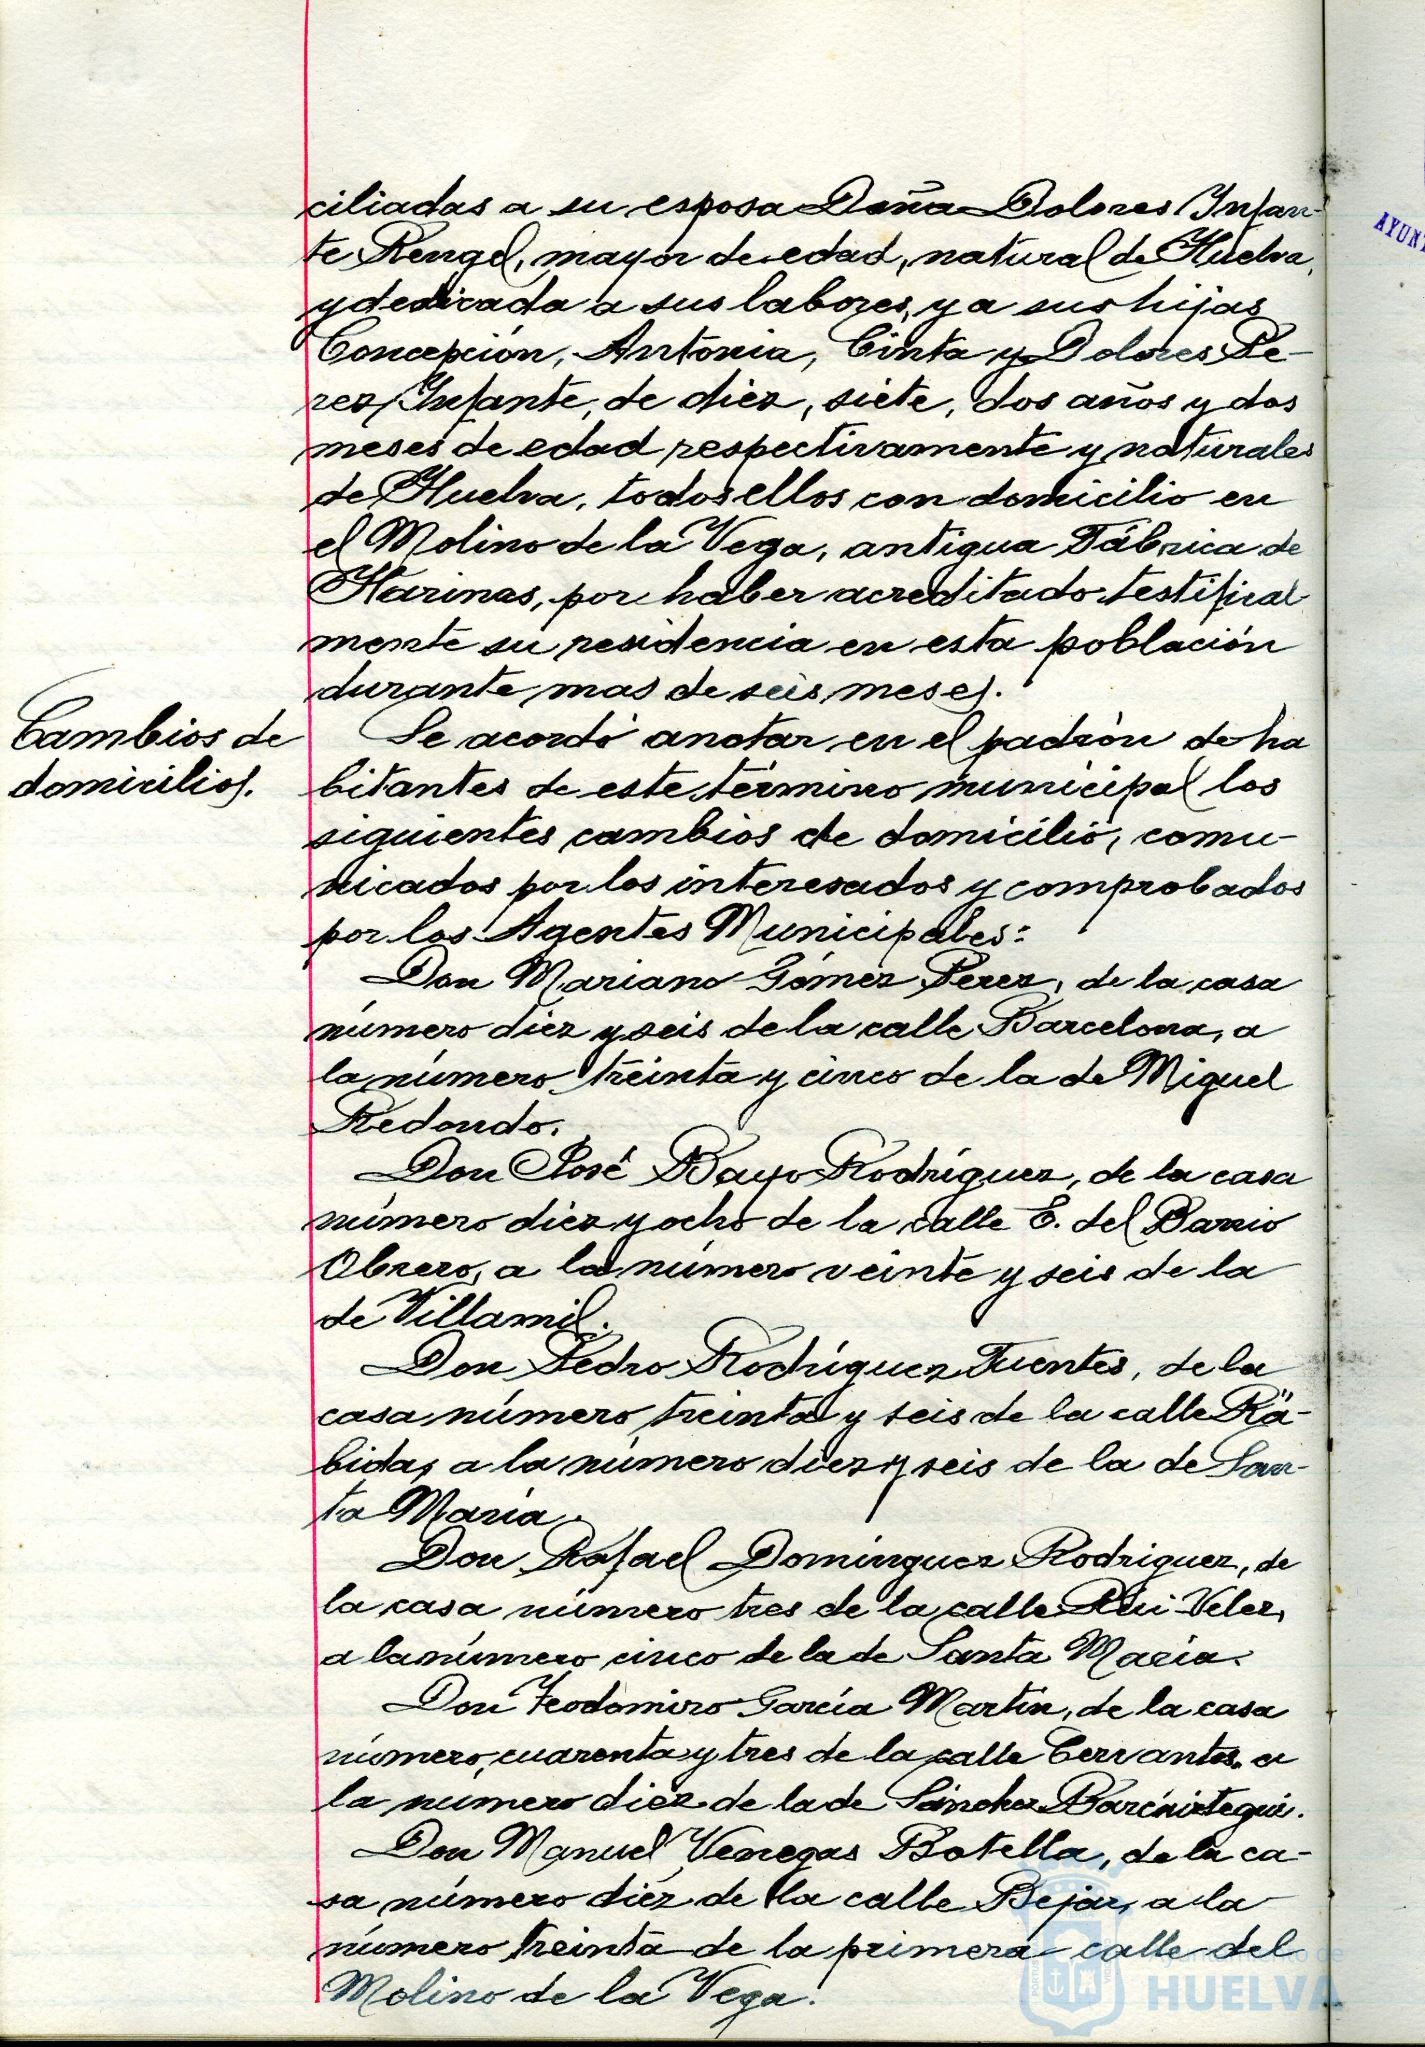 ciliadas a su esposa Doña Dolores Infan-
te Rengel, mayor de edad, natural de Huelva,
y dedicada a sus labores, y a sus hijas
Concepción, Antonia, Cinta y Dolores Pe-
rez Infante, de diez, siete, dos años y dos
meses de edad respectivamente y naturales
de Huelva, todos ellos con domicilio en
el Molino de la Vega, antigua Fábrica de
Harinas, por haber acreditado testifical-
mente su residencia en esta población
durante mas de seis meses.
Cambios de
domicilios.
Se acordó anotar en el padrón de ha
bitantes de este término municipal los
siguientes cambios de domicilio, comu-
nicados por los interesados y comprobados
por los Agentes Municipales:
Don Mariano Gómez Perez, de la casa
número diez y seis de la calle Barcelona, a
la número treinta y cinco de la de Miguel
Redondo.
Don José Bayo Rodríguez, de la casa
número diez y ocho de la calle E. del Barrio
Obrero, a la número veinte y seis de la
de Villamil.
Don Pedro Rodríguez Fuentes, de la
casa número treinta y seis de la calle Rá-
bida, a la número diez y seis de la de San-
ta María.
Don Rafael Domínguez Rodriguez, de
la casa número tres de la calle Rui Velez,
a la número cinco de la de Santa María.
Don Teodomiro García Martín, de la casa
número cuarenta y tres de la calle Cervantes a
la número diez de la de Sánchez Barcaiztegui.
Don Manuel Venegas Botella, de la ca-
sa número diez de la calle Bejar, a la
número treinta de la primera calle del
Molino de la Vega.
AYUNT
Ayuntamiento de
HUELVA